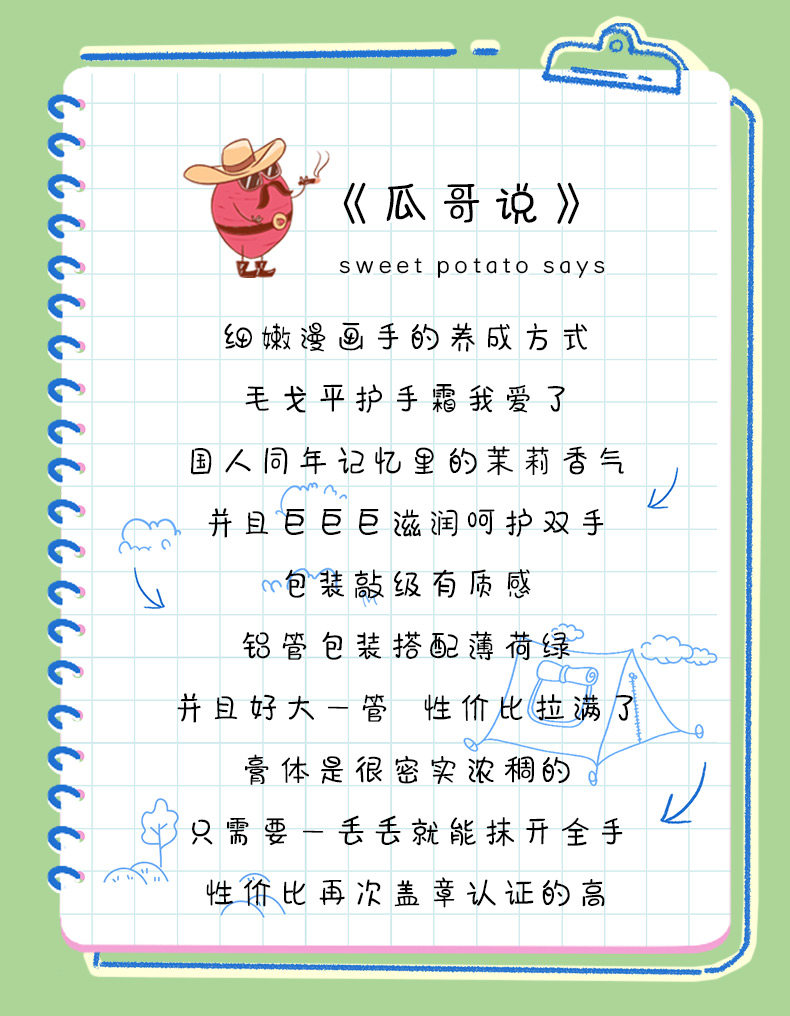 《瓜哥说》
sweet potato says
细嫩漫画手的养成方式
毛戈平护手霜我爱了
国人同年记忆里的茉莉香气
并且巨巨巨滋润呵护双手
包装敲级有质感
铝管包装搭配薄荷绿
并且好大一管 性价比拉满了
膏体是很密实浓稠的
只需要一丢丢就能抹开全手
性价比再次盖章认证的高